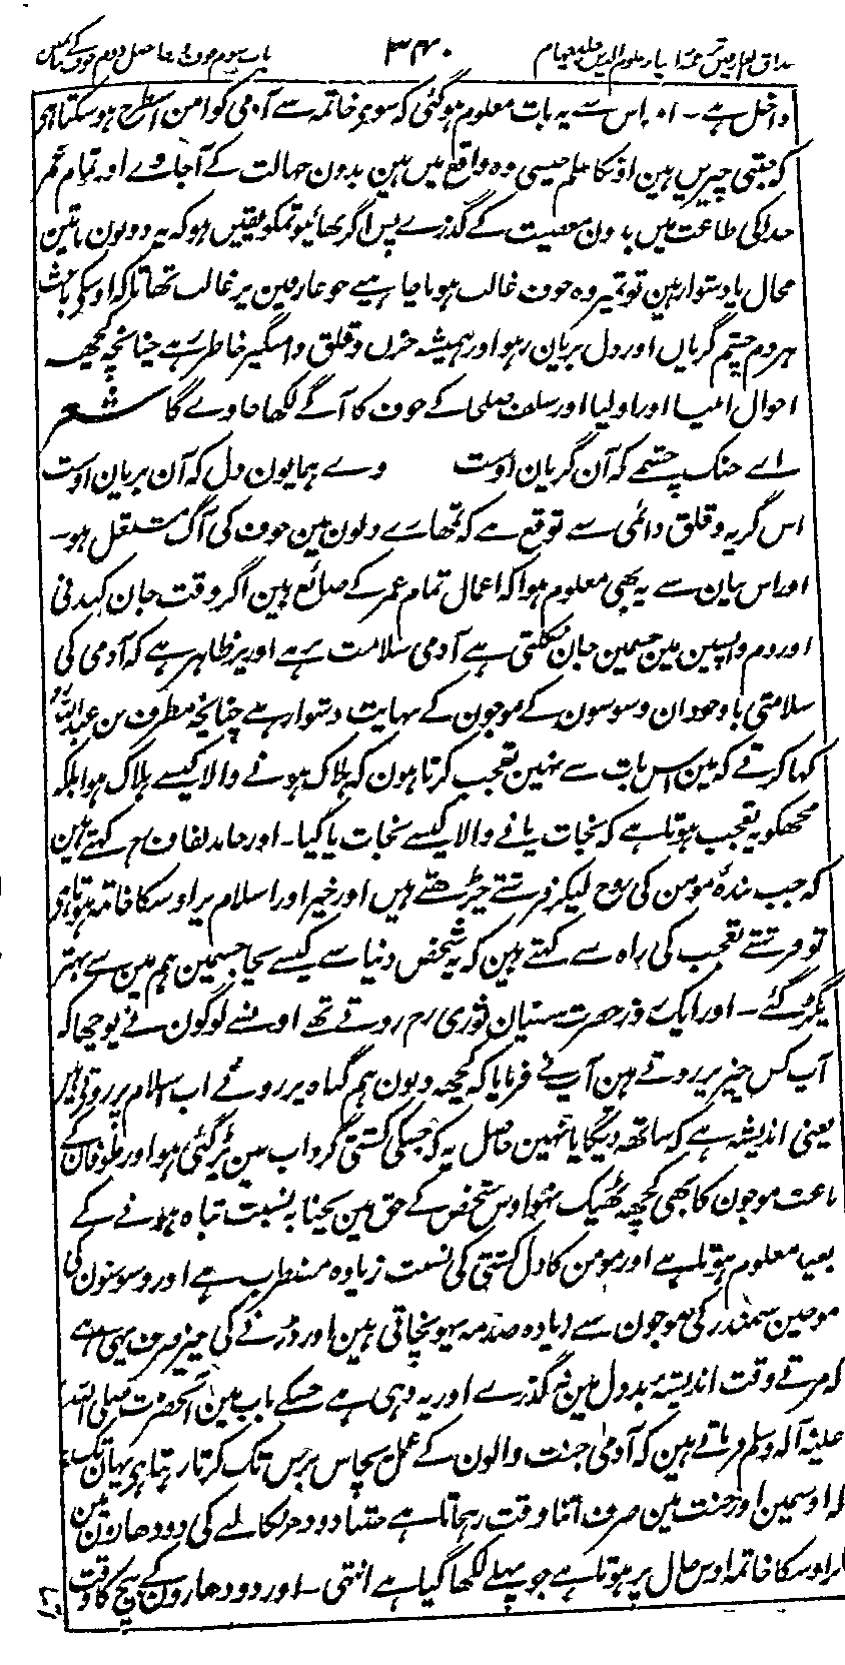 مذاق العارفین ترجمہ احیاء علوم الدین جلد چہارم ۳۴۰ باب سوم خوف و رجا فصل دوم خوف کے بیان میں
داخل ہے۔ اور اس سے یہ بات معلوم ہوگئی کہ سوءِ خاتمہ سے آدمی کو امن اسطرح ہوسکتا ہی
کہ جتنی چیزیں ہین اونکا علم جیسی وہ واقع میں ہین بدون جہالت کے آجاوے اور تمام عمر
خدا کی طاعت میں بدون معصیت کے گذرے پس اگر بھائیو تمکو یقین ہو کہ یہ دونون باتین
محال یا دشوار ہین تو تمپر وہ خوف غالب ہونا چاہیے جو عارفین پر غالب تھا تاکہ اوسکی باعث
ہر دم چشم گریاں اور دل بریان رہو اور ہمیشہ حزن و قلق دامنگیر خاطر رہے چنانچہ کچھ
احوال انبیا اور اولیا اور سلف صلحا کے خوف کا آگے لکھا جاوے گا شعر
اے خنک چشمے کہ آن گریان اوست وے ہمایون دل کہ آن بریان اوست
اس گریہ و قلق دائمی سے توقع ہے کہ تمھارے دلون مین خوف کی آگ مشتعل ہو۔
اور اس بیان سے یہ بھی معلوم ہوا کہ اعمال تمام عمر کے ضائع ہین اگر وقت جان کندنی
اور دم واپسین مین جسمین جان نکلتی ہے آدمی سلامت نرہے اور یہ ظاہر ہے کہ آدمی کی
سلامتی باوجود ان وسوسون کے موجون کے نہایت دشوار ہے چنانچہ مطرف بن عبداللہ رح
کہا کرتے کہ مین اس بات سے نہین تعجب کرتا ہون کہ ہلاک ہونے والا کیسے ہلاک ہوا بلکہ
مجھکو یہ تعجب ہوتا ہے کہ نجات پانے والا کیسے نجات پا گیا۔ اور حامد لفاف رح کہتے ہین
کہ جب بندۂ مومن کی روح لیکر فرشتے چڑھتے ہیں اور خیر اور اسلام پر اوسکا خاتمہ ہوتا ہی
تو فرشتے تعجب کی راہ سے کہتے ہین کہ یہ شخص دنیا سے کیسے بچا جسمین ہم مین سے بہتر
بگڑ گئے۔ اور ایک روز حضرت سفیان ثوری رح روتے تھے اونسے لوگون نے پوچھا کہ
آپ کس چیز پر روتے ہین آپنے فرمایا کہ کچھ دنون ہم گناہ پر روئے اب اسلام پر روتے ہیں
یعنی اندیشہ ہے کہ ساتھ دیگا یا نہین حاصل یہ کہ جسکی کشتی گرداب مین پڑ گئی ہو اور طوفان کے
باعث موجون کا بھی کچھ ٹھیک نہو اوس شخص کے حق مین بچنا بہ نسبت تباہ ہونے کے
بعید معلوم ہوتا ہے اور مومن کا دل کشتی کی نسبت زیادہ مضطرب ہے اور وسوسون کی
موجین سمندر کی موجون سے زیادہ صدمہ پہونچاتی ہین اور ڈرنے کی چیز صرف یہی ہے
کہ مرتے وقت اندیشۂ بد دل مین نہ گذرے اور یہ وہی ہے جسکے باب مین آنحضرت صلی اللہ
علیہ وآلہ وسلم فرماتے ہین کہ آدمی جنت والون کے عمل پچاس برس تک کرتا رہتا ہی یہان تک
کہ اوسمین اور جنت مین صرف اتنا وقت رہجاتا ہے جتنا دودھ نکالنے کی دو دھارون مین
اور اوسکا خاتمہ اوس حال پر ہوتا ہے جو پہلے لکھا گیا ہے انتہی۔ اور دو دھارون کے بیچ کا وقت